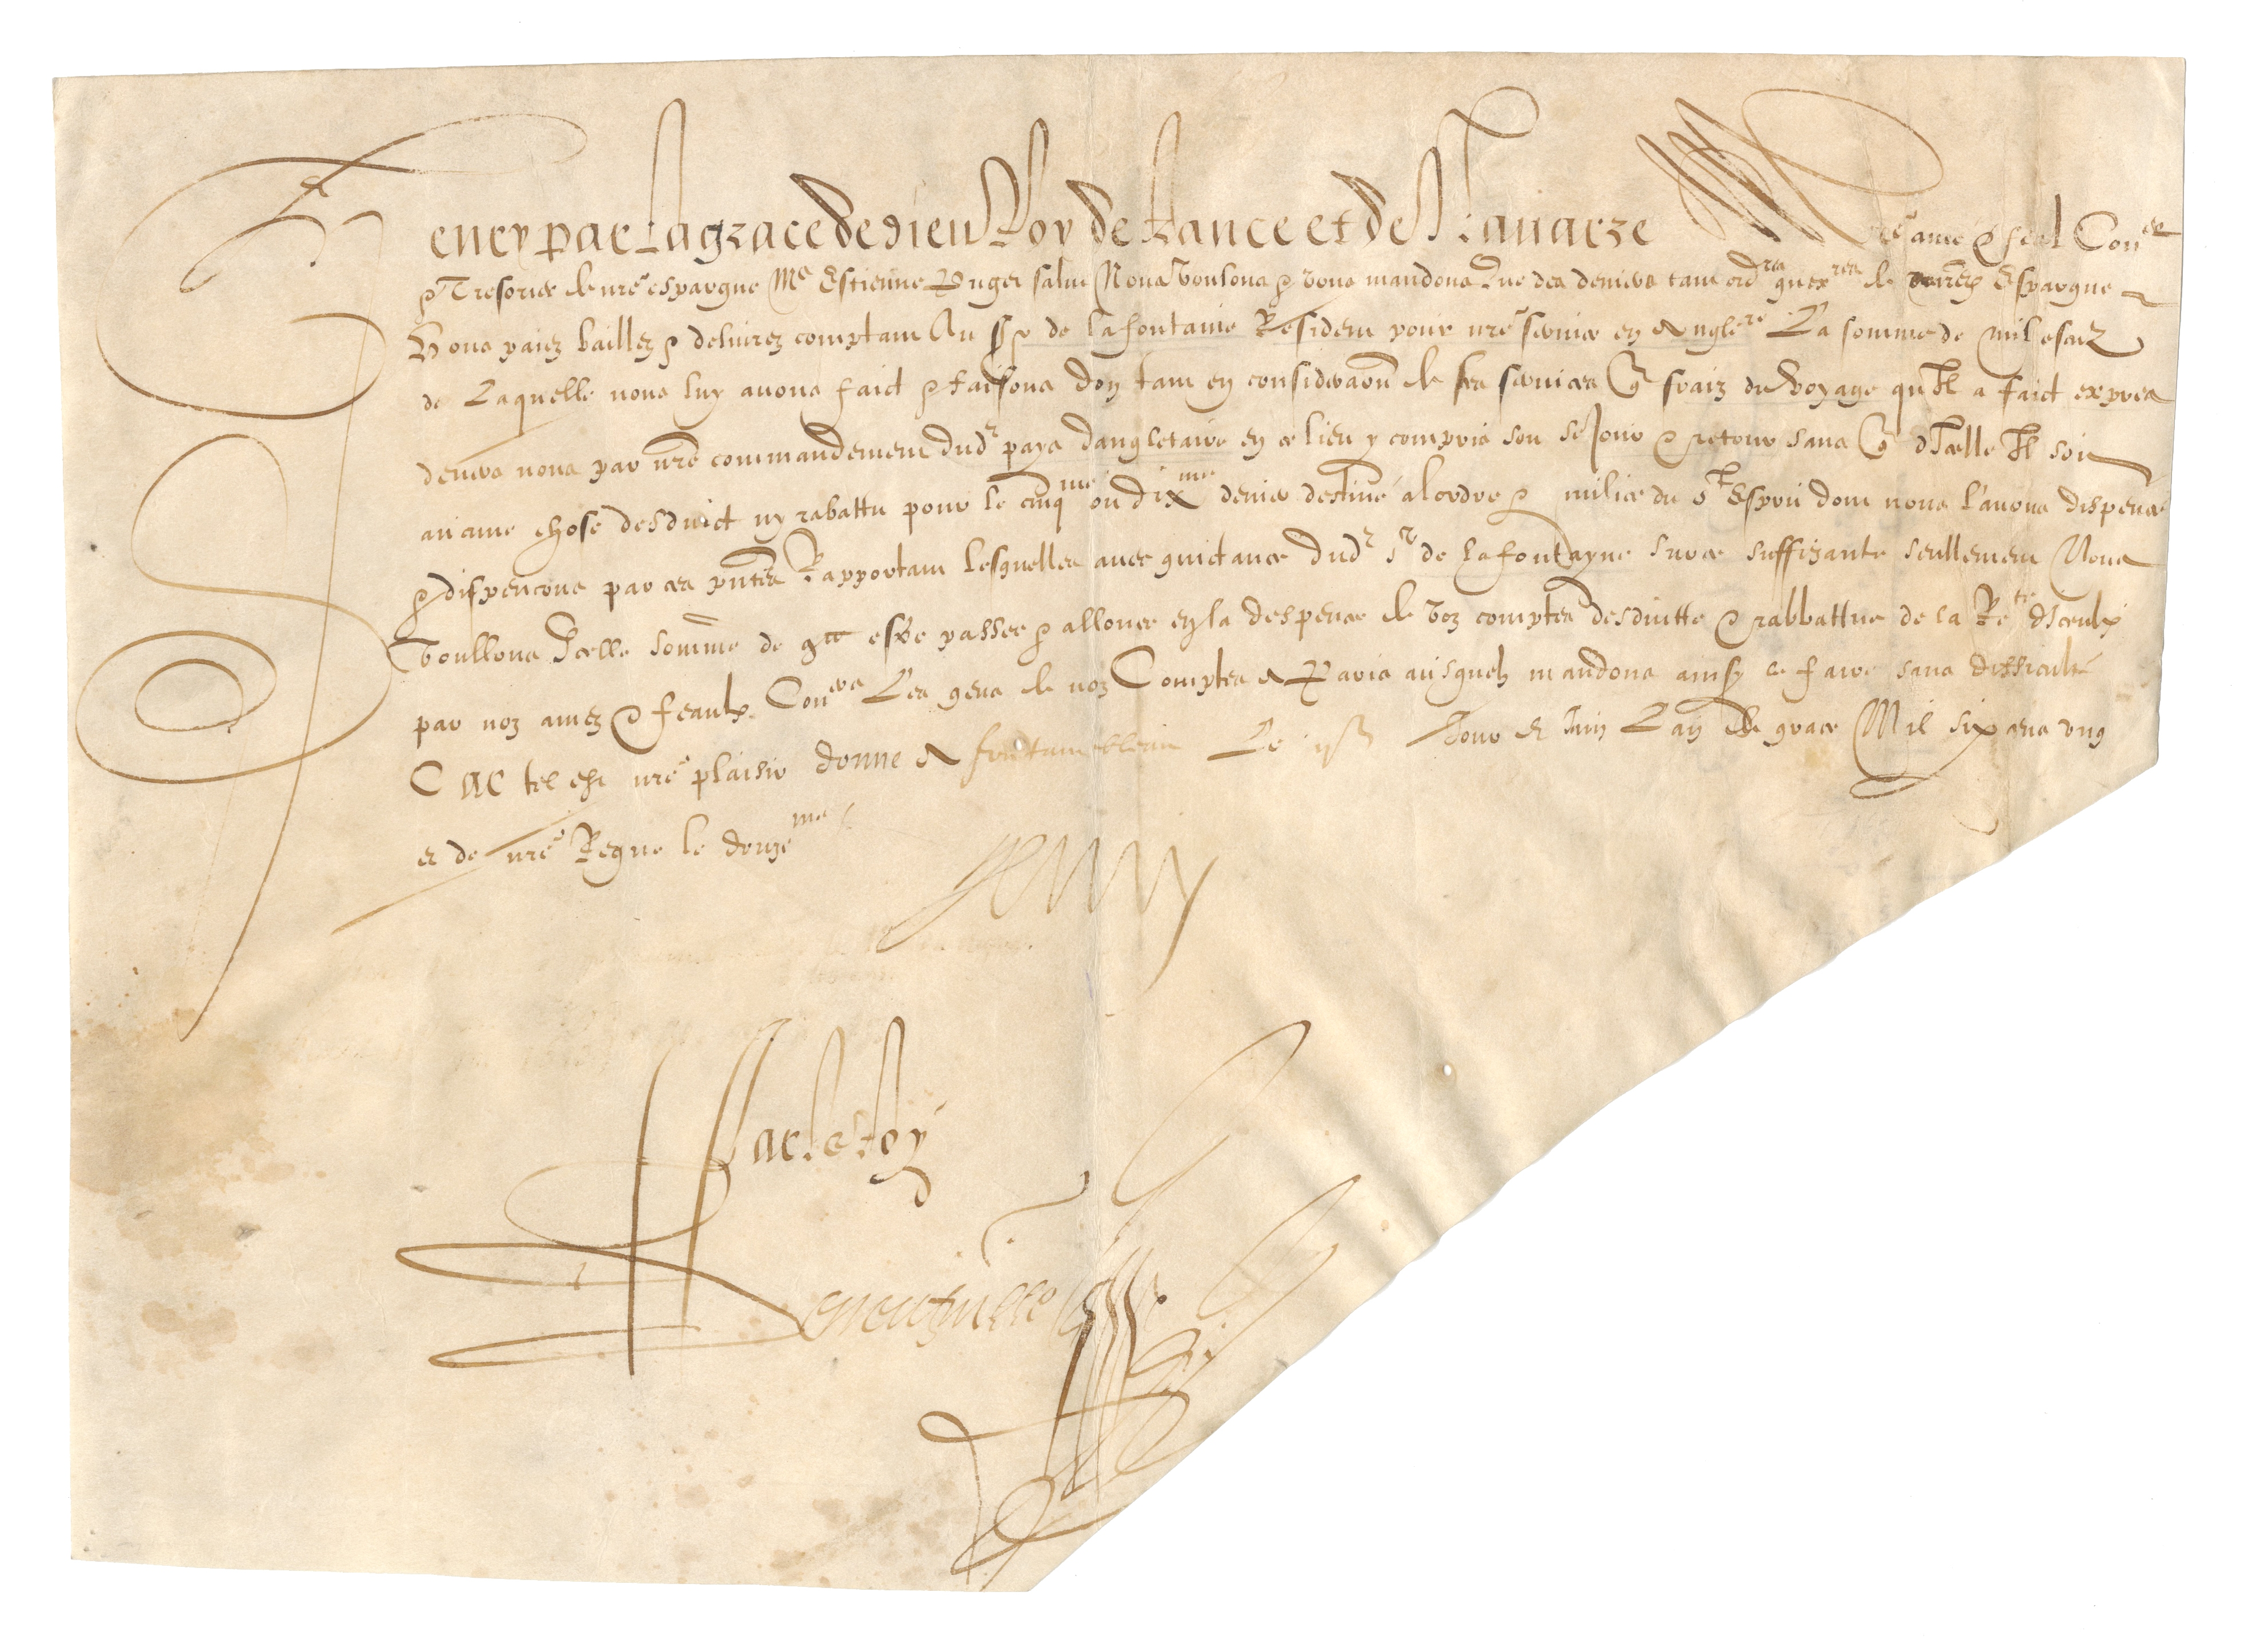 Henry par la grace de dieu Roy de france et de Navarre A nre ame & feal Con^er
& Tresorier de nre espargne M^e Estienne Puget salut Nous voulons & vous mandons Que des deniers tant ord^res quex^res de nred espargne
Vous paiez baillez & deliurez comptant Au s^r de la fontaine Resident pour nre seruice en Angle^re La somme de mil escuz
de Laquelle nous luy auons faict & faisons don tant en consideraon de ses seruices que fraiz du voyage quil a faict expres
deuers nous par nre commandement dud^t pays dangletaire en ce lieu y compris son seJour & retour sans que dIcelle Il soit
aucune chose desduict ny rabattu pour le cinq^me ou dix^me denier destiné alordre & milice du s^t Esprit dont nous l'auons dispencé
& dispencons par ces pntes Rapportant lesquelles auec quictance dud^t s^r de la fontayne sur ce suffizante seullement Nous
Voullons Icelle somme de M^ct estre passee & allouee en la despence de voz comptes desduitte & rabbattue de la Re^te dIceulx
par noz amez & feaulx Con^ers Les gens de noz Comptes A Paris ausquelz mandons ainsy le faire sans difficulté
Car tel est nre plaisir donne A fontainebleau Le jour de Juin L'an de grace Mil six cens ung
et de nre Regne le douze^me
Henry
Par le Roy
Deneufville